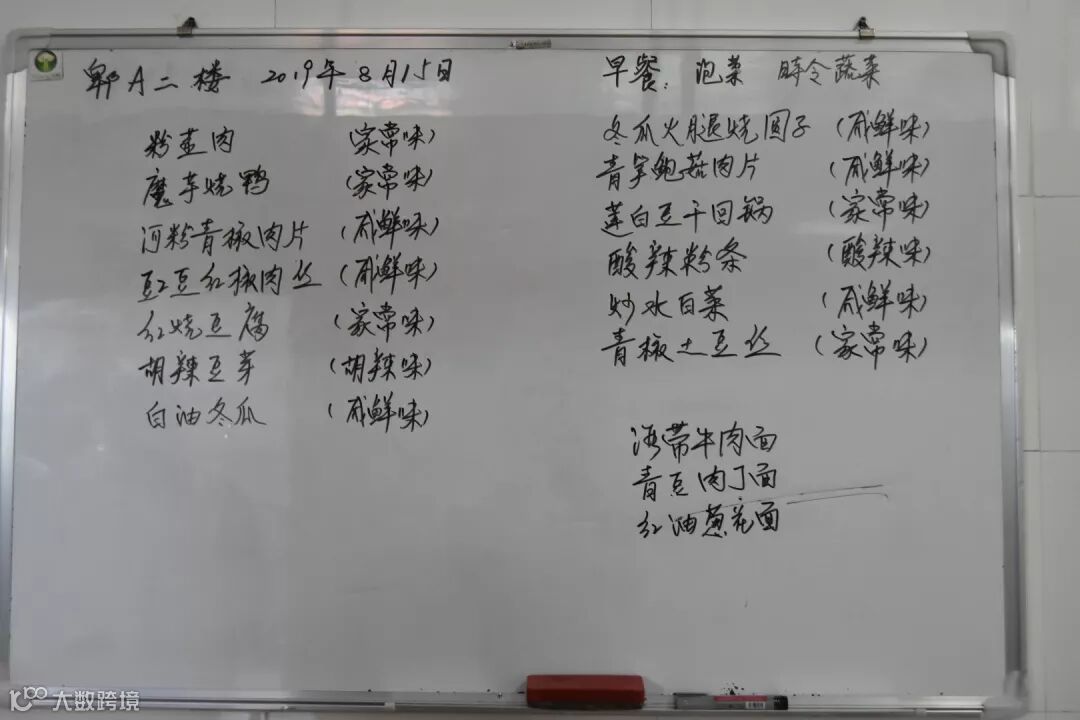 郫A二楼 2019年8月15日
粉蒸肉 (家常味)
魔芋烧鸭 (家常味)
河粉青椒肉片 (咸鲜味)
豇豆红椒肉丝 (咸鲜味)
红烧豆腐 (家常味)
胡辣豆芽 (胡辣味)
白油冬瓜 (咸鲜味)
早餐: 泡菜 時令蔬菜
冬瓜火腿烧圆子 (咸鲜味)
青笋鲍菇肉片 (咸鲜味)
莲白豆干回锅 (家常味)
酸辣粉条 (酸辣味)
炒水白菜 (咸鲜味)
青椒土豆丝 (家常味)
海带牛肉面
青豆肉丁面
红油葱花面
大数跨境